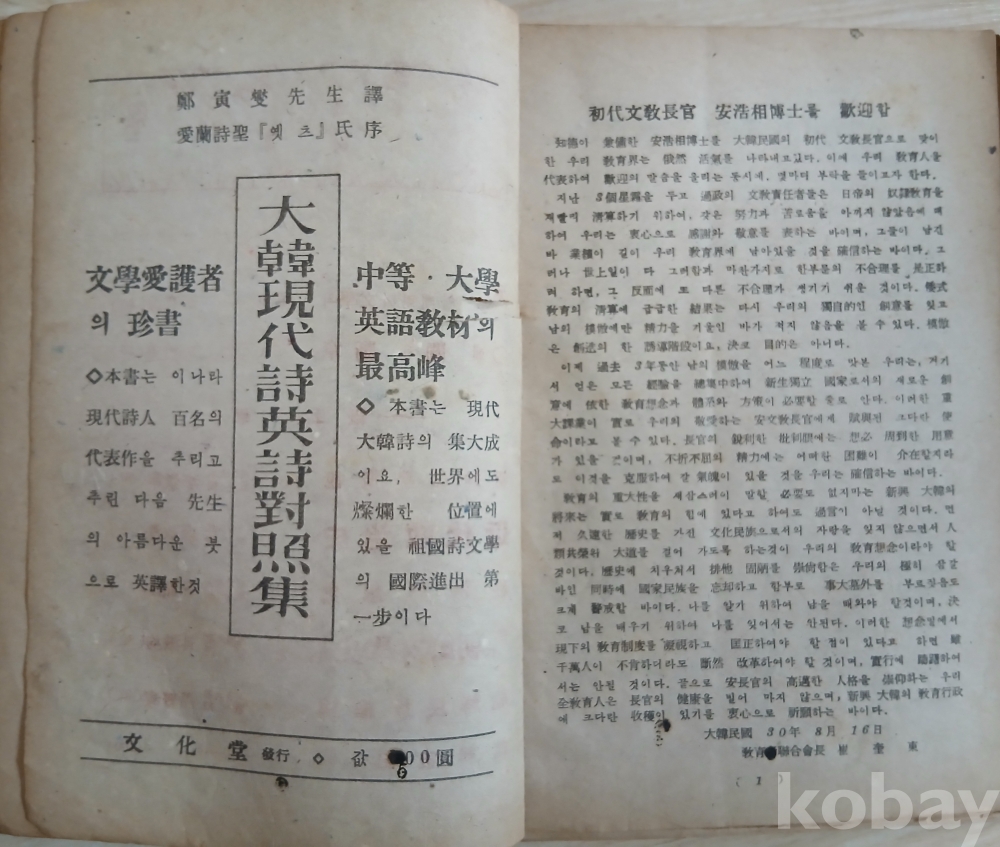 鄭寅燮先生譯
愛蘭詩聖『옛츠』氏序
大韓現代詩英詩對照集
中等·大學
英語敎材의
最高峰
◇ 本書는 現代
大韓詩의 集大成
이요, 世界에도
燦爛한 位置에
있을 祖國詩文學
의 國際進出 第
一步이다
文學愛護者
의 珍書
◇本書는 이나라
現代詩人 百名의
代表作을 추리고
추린 다음 先生
의 아름다운 붓
으로 英譯한것
文化堂 發行 ◇ 값 00圓
初代文敎長官 安浩相博士를 歡迎함
知德이 兼備한 安浩相博士를 大韓民國의 初代 文敎長官으로 맞이
한 우리 敎育界는 俄然 活氣를 나타내고있다. 이에 우리 敎育人을
代表하여 歡迎의 말씀을 올리는 동시에, 몇마디 부탁을 들이고자 한다.
지난 3個星霜을 두고 過政의 文敎責任者들은 日帝의 奴隷敎育을
재빨에 淸算하기 위하여, 갖은 努力과 苦로움을 아끼지 않았음에 대
하여 우리는 衷心으로 感謝와 敬意를 表하는 바이며, 그들이 남긴
바 業績이 길이 우리 敎育界에 남아있을 것을 確信하는 바이다. 그
러나 世上일이 다 그러함과 마찬가지로 한부문의 不合理를 是正하
려 하면, 그 反面에 또 다른 不合理가 생기기 쉬운 것이다. 倭式
敎育의 淸算에 급급한 結果는 다시 우리의 獨自的인 創意를 잊고
남의 模倣에만 精力을 기울인 바가 적지 않음을 볼 수 있다. 模倣
은 創造의 한 誘導階段이요, 決로 目的은 아니다.
이제 過去 3年동안 남의 模倣을 어느 程度로 맛본 우리는, 거기
서 얻은 모든 經驗을 總集中하여 新生獨立 國家로서의 새로운 創
意에 依한 敎育想念과 體系와 方策이 必要할 줄로 안다. 이러한 重
大課業이 實로 우리의 敬愛하는 安文敎長官에게 賦與된 크다란 使
命이라고 볼 수 있다. 長官의 銳利한 批判眼에는 想必 周到한 用意
가 있을 것이며, 不折不屈의 精力에는 어떠한 困難이 介在할지라
도 이것을 克服하여 갈 氣魄이 있을 것을 우리는 確信하는 바이다.
敎育의 重大性을 새삼스러이 말할 必要도 없지마는 新興 大韓의
將來는 實로 敎育의 힘에 있다고 하여도 過言이 아닐 것이다. 먼
저 久遠한 歷史를 가진 文化民族으로서의 자랑을 잊지 않으면서 人
類共榮의 大道를 걸어 가도록 하는것이 우리의 敎育想念이라야 할
것이다. 歷史에 치우쳐서 排他 固陋를 崇尙함은 우리의 極히 삼갈
바인 同時에 國家民族을 忘却하고 함부로 事大慕外를 부르짖음도
크게 警戒할 바이다. 나를 알기 위하여 남을 배와야 할것이며, 決
로 남을 배우기 위하여 나를 잊어서는 안된다. 이러한 想念밑에서
現下의 敎育制度를 凝視하고 匡正하여야 할 점이 있다고 하면 雖
千萬人이 不肯하더라도 斷然 改革하여야 할 것이며, 實行에 躊躇하여
서는 안될 것이다. 끝으로 安長官의 高邁한 人格을 信仰하는 우리
全敎育人은 長官의 健康을 빌어 마지 않으며, 新興 大韓의 敎育行政
에 크다란 收穫이 있기를 衷心으로 祈願하는 바이다.
大韓民國 30年 8月 16日
敎育 聯合會長 崔奎東
( 1 )
kobay